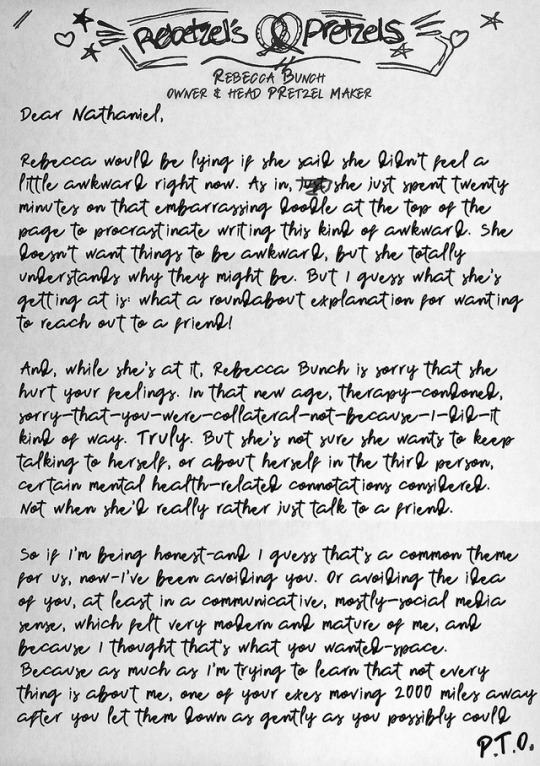 Rebetzel's Pretzels
Rebecca Bunch
owner & head pretzel maker
Dear Nathaniel,
Rebecca would be lying if she said she didn't feel a
little awkward right now. As in, she just spent twenty
minutes on that embarrassing doodle at the top of the
page to procrastinate writing this kind of awkward. She
doesn't want things to be awkward, but she totally
understands why they might be. But I guess what she's
getting at is: what a roundabout explanation for wanting
to reach out to a friend!
And, while she's at it, Rebecca Bunch is sorry that she
hurt your feelings. In that new age, therapy-condoned,
sorry-that-you-were-collateral-not-because-I-did-it
kind of way. Truly. But she's not sure she wants to keep
talking to herself, or about herself in the third person,
certain mental health-related connotations considered.
Not when she'd really rather just talk to a friend.
So if I'm being honest-and I guess that's a common theme
for us, now-I've been avoiding you. Or avoiding the idea
of you, at least in a communicative, mostly-social media
sense, which felt very modern and mature of me, and
because I thought that's what you wanted-space.
Because as much as I'm trying to learn that not every
thing is about me, one of your exes moving 2000 miles away
after you let them down as gently as you possibly could
P.T.O.